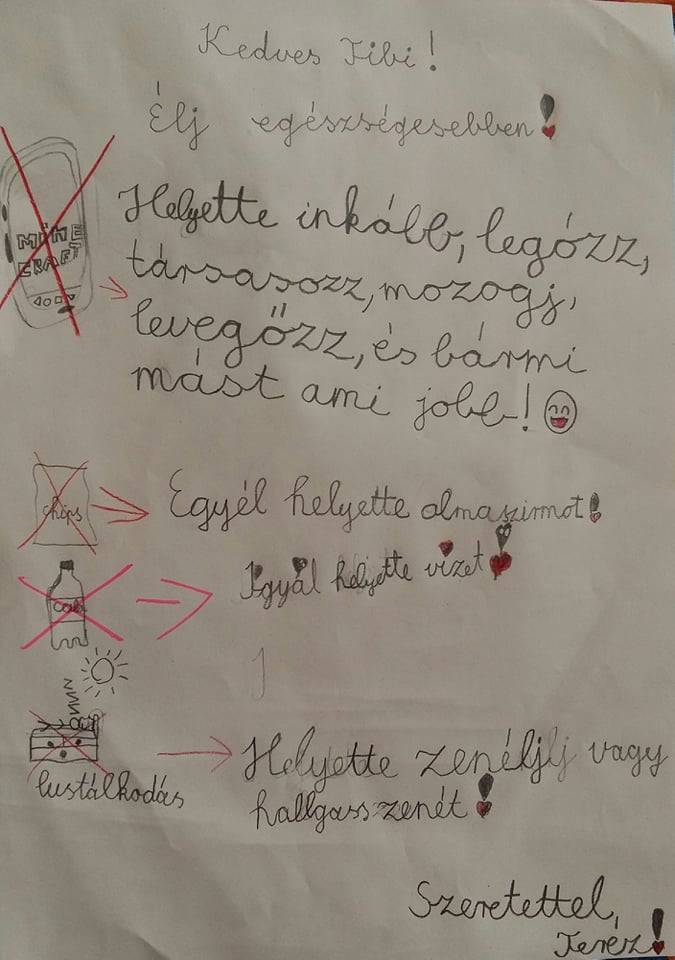 Kedves Tibi!
Élj egészségesebben!
MINE
CRAFT
Helyette inkább, legózz,
társasozz, mozogj,
levegőzz, és bármi
mást ami jobb!
chips
Egyél helyette almaszirmot!
cola
Igyál helyette vizet!
lustálkodás
Helyette zenéljlj vagy
hallgass zenét!
Szeretettel,
Teréz!